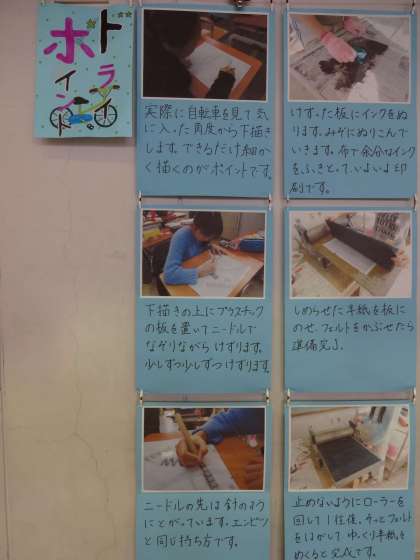 ドライ
ポイント
実際に自転車を見て気
に入った角度から下描き
します。できるだけ細か
く描くのがポイントです。
下描きの上にプラスチック
の板を置いてニードルで
なぞりながらけずります。
少しずつ少しずつけずります。
ニードルの先は針のよう
にとがっています。エンピツ
と同じ持ち方です。
けずった板にインクをぬ
ります。みぞにぬりこんで
いきます。布で余分なインク
をふきとって、いよいよ印
刷です。
しめらせた手紙を板に
のせ、フェルトをかぶせたら
準備完了。
止めないようにローラーを
回して1往復。そっとフェルト
をはがして ゆっくり手紙を
めくると完成です。